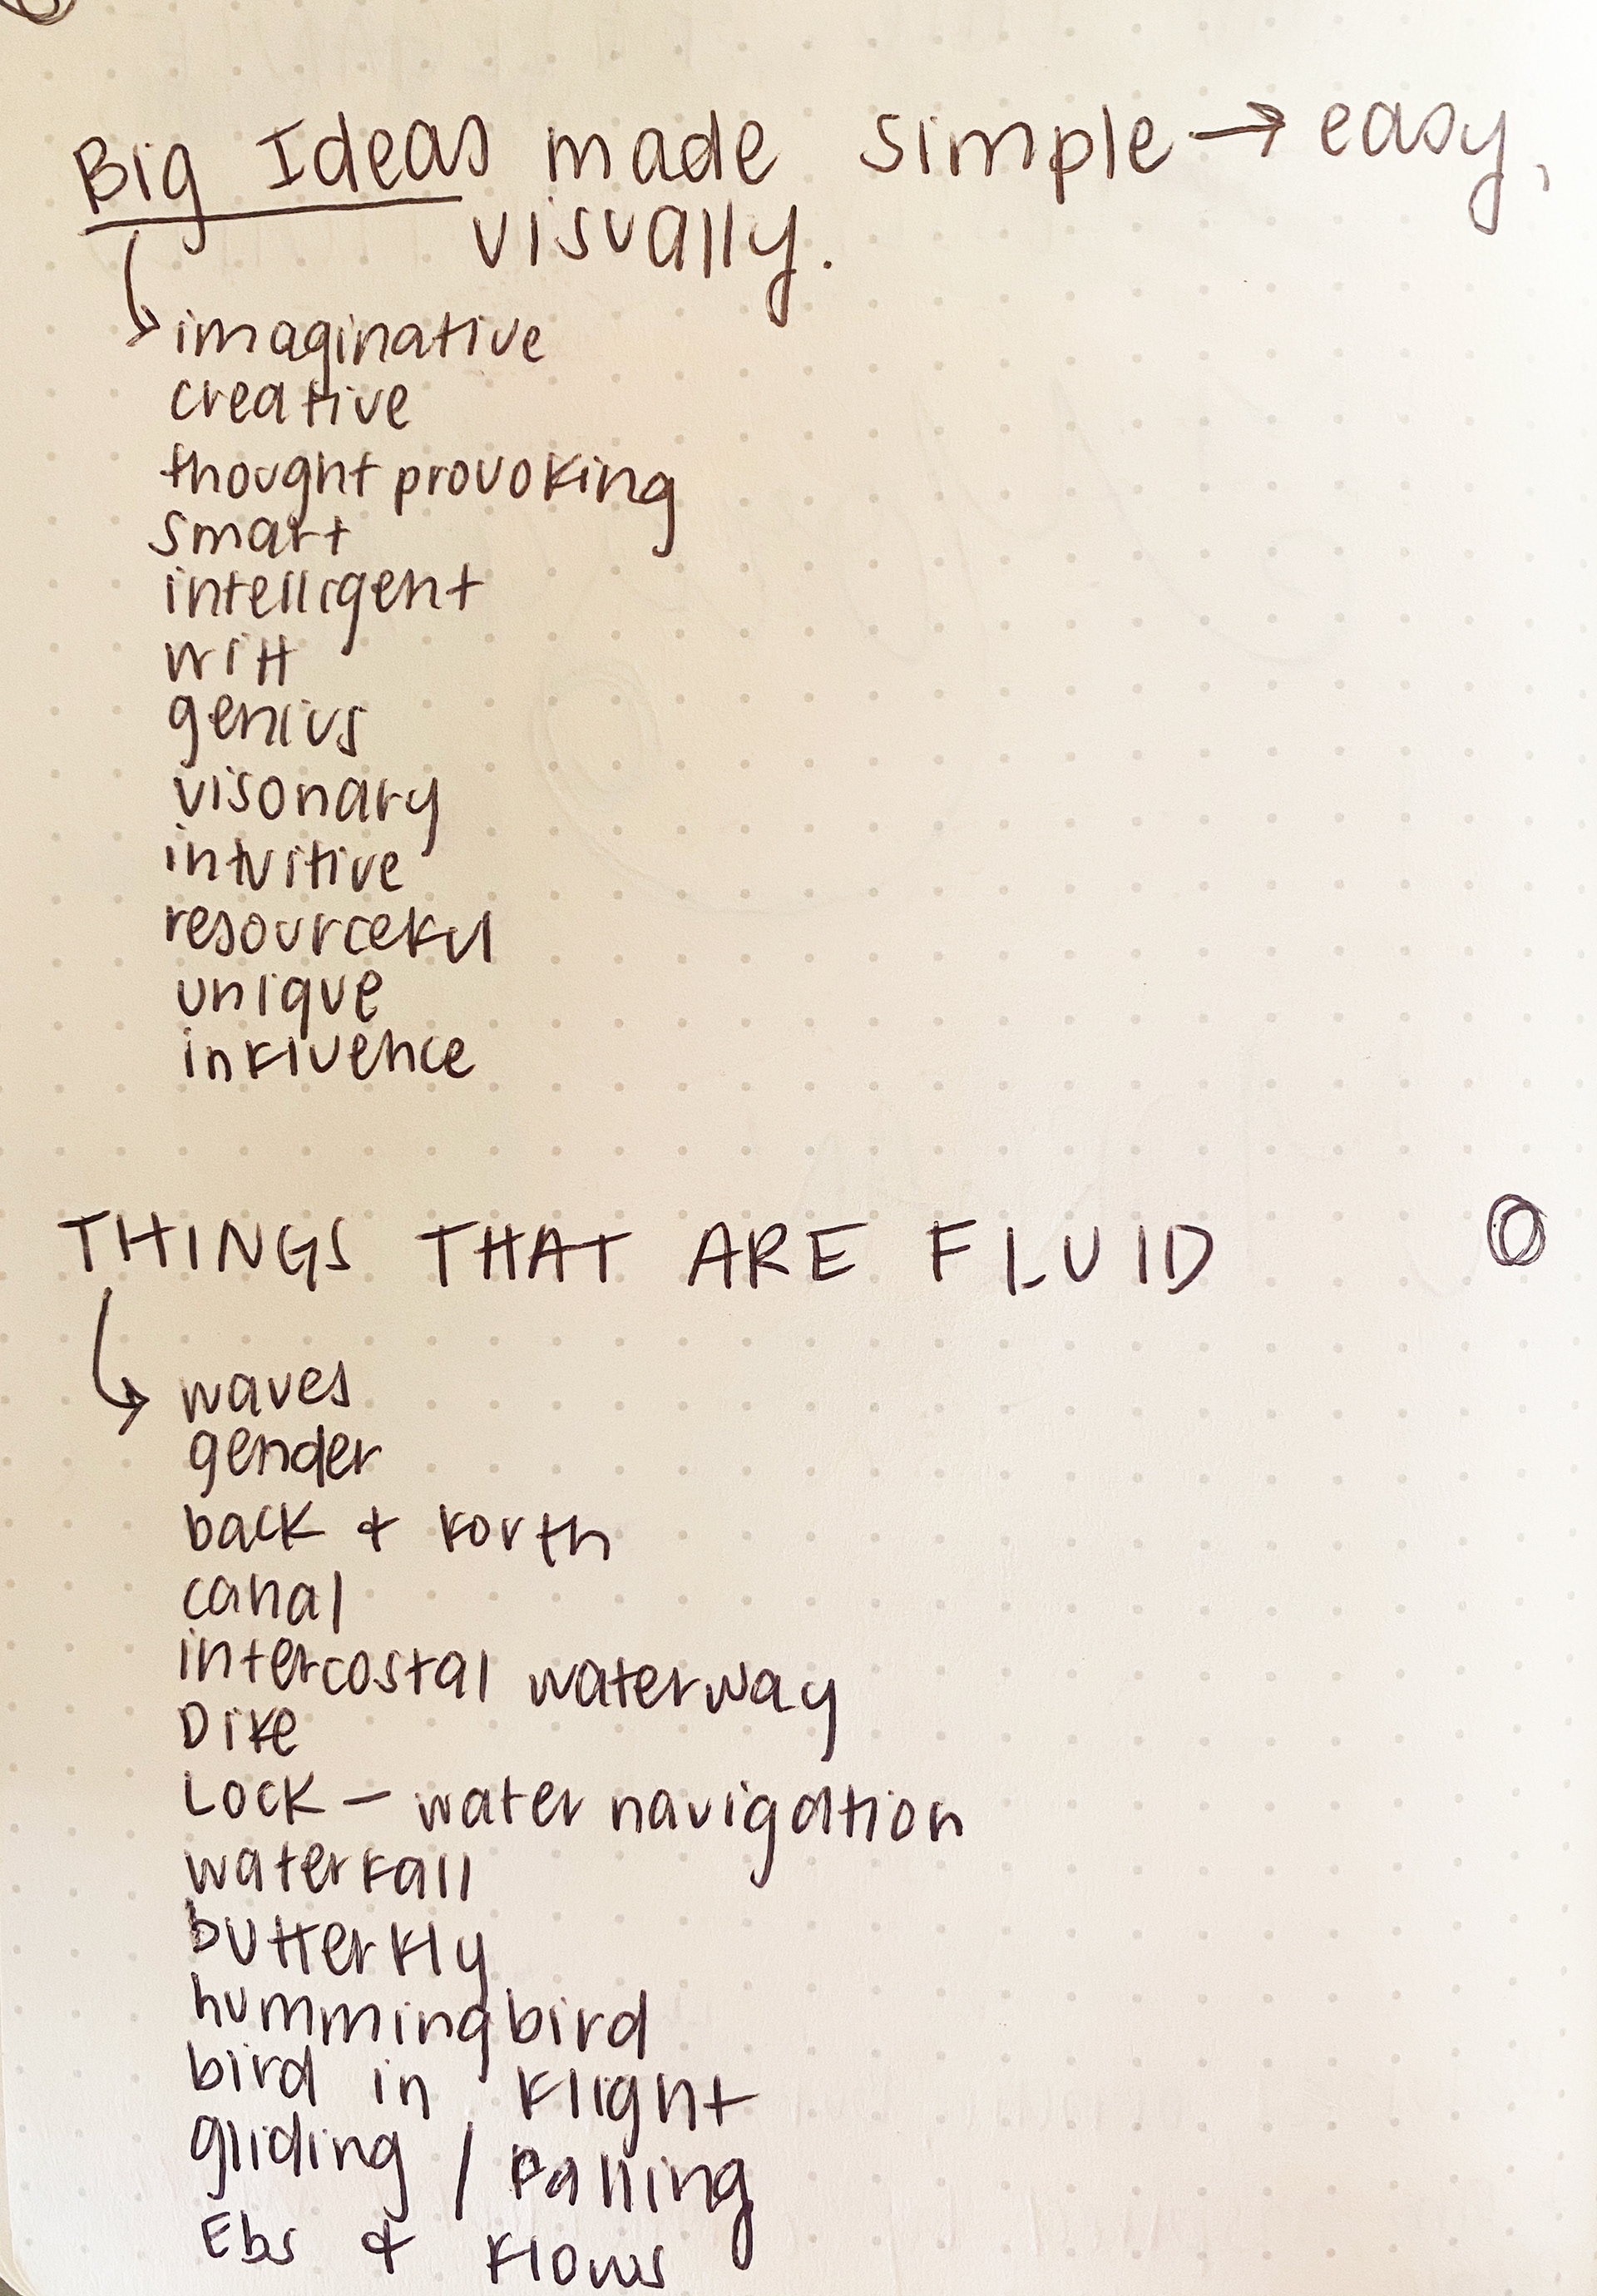 Big Ideas made simple → easy,
visually.
imaginative
creative
thought provoking
smart
intelligent
witt
genius
visonary
intuitive
resourceful
unique
influence
THINGS THAT ARE FLUID
waves
gender
back & forth
canal
intercostal waterway
Dike
Lock - water navigation
waterfall
butterfly
hummingbird
bird in flight
gliding / falling
Ebs & flows